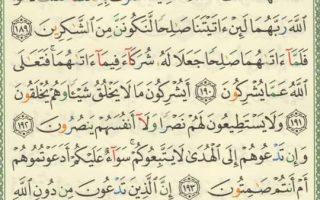 ٱللَّهَ رَبَّهُمَا لَئِنْ ءَاتَيْتَنَا صَٰلِحًا لَّنَكُونَنَّ مِنَ ٱلشَّٰكِرِينَ ١٨٩
فَلَمَّآ ءَاتَىٰهُمَا صَٰلِحًا جَعَلَا لَهُۥ شُرَكَآءَ فِيمَآ ءَاتَىٰهُمَا ۚ فَتَعَٰلَى
ٱللَّهُ عَمَّا يُشْرِكُونَ ١٩٠ أَيُشْرِكُونَ مَا لَا يَخْلُقُ شَيْـًٔا وَهُمْ يُخْلَقُونَ
١٩١ وَلَا يَسْتَطِيعُونَ لَهُمْ نَصْرًا وَلَآ أَنفُسَهُمْ يَنصُرُونَ ١٩٢
وَإِن تَدْعُوهُمْ إِلَى ٱلْهُدَىٰ لَا يَتَّبِعُوكُمْ ۚ سَوَآءٌ عَلَيْكُمْ أَدَعَوْتُمُوهُمْ
أَمْ أَنتُمْ صَٰمِتُونَ ١٩٣ إِنَّ ٱلَّذِينَ تَدْعُونَ مِن دُونِ ٱللَّهِ